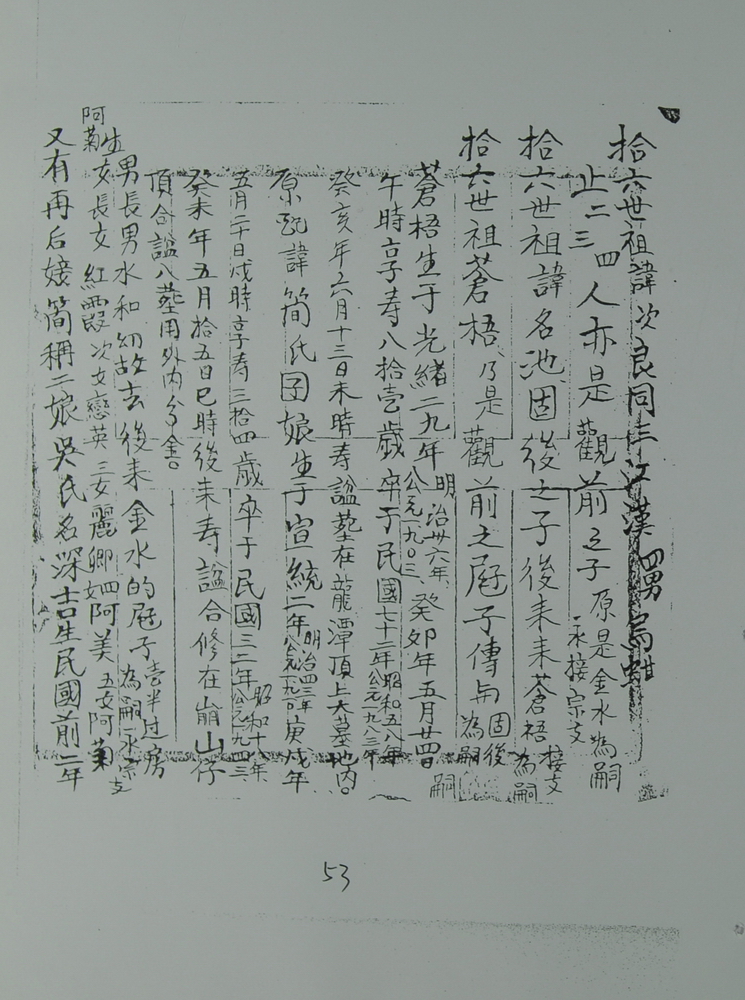 拾六世祖諱次良同三江漢 四男烏蚶
止二三四人亦是觀前之子 原是金水為嗣 承接宗支
拾六世祖諱名池固後之子後來未蒼梧接支為嗣
拾六世祖蒼梧乃是觀前之屘子傳與固後為嗣嗣
蒼梧生于光緒二九年明治卅六年公元一九〇三癸卯年五月廿四日
午時享壽八拾壱歲卒于民國七十二年昭和五八年公元一九八三年
癸亥年六月十三日未時壽諡塟在龍潭頂上大墓地內。
原配諱簡氏 娘生于宣統二年明治四三年公元一九一〇庚戌年
五月二十日戌時享壽三拾四歲卒于民國三二年昭和十八年公元一九四三
癸未年五月拾五日巳時後来寿諡合修在崩山仔
頂合諡八塟用外內分金。
生男長男水和幼故去後来金水的屘子壱半过房為嗣承宗支
女長女紅霞次女戀英三女麗卿四女阿美五女阿菊
阿菊
又有再后娘簡稱二娘吳氏名深吉生民國前二年
53